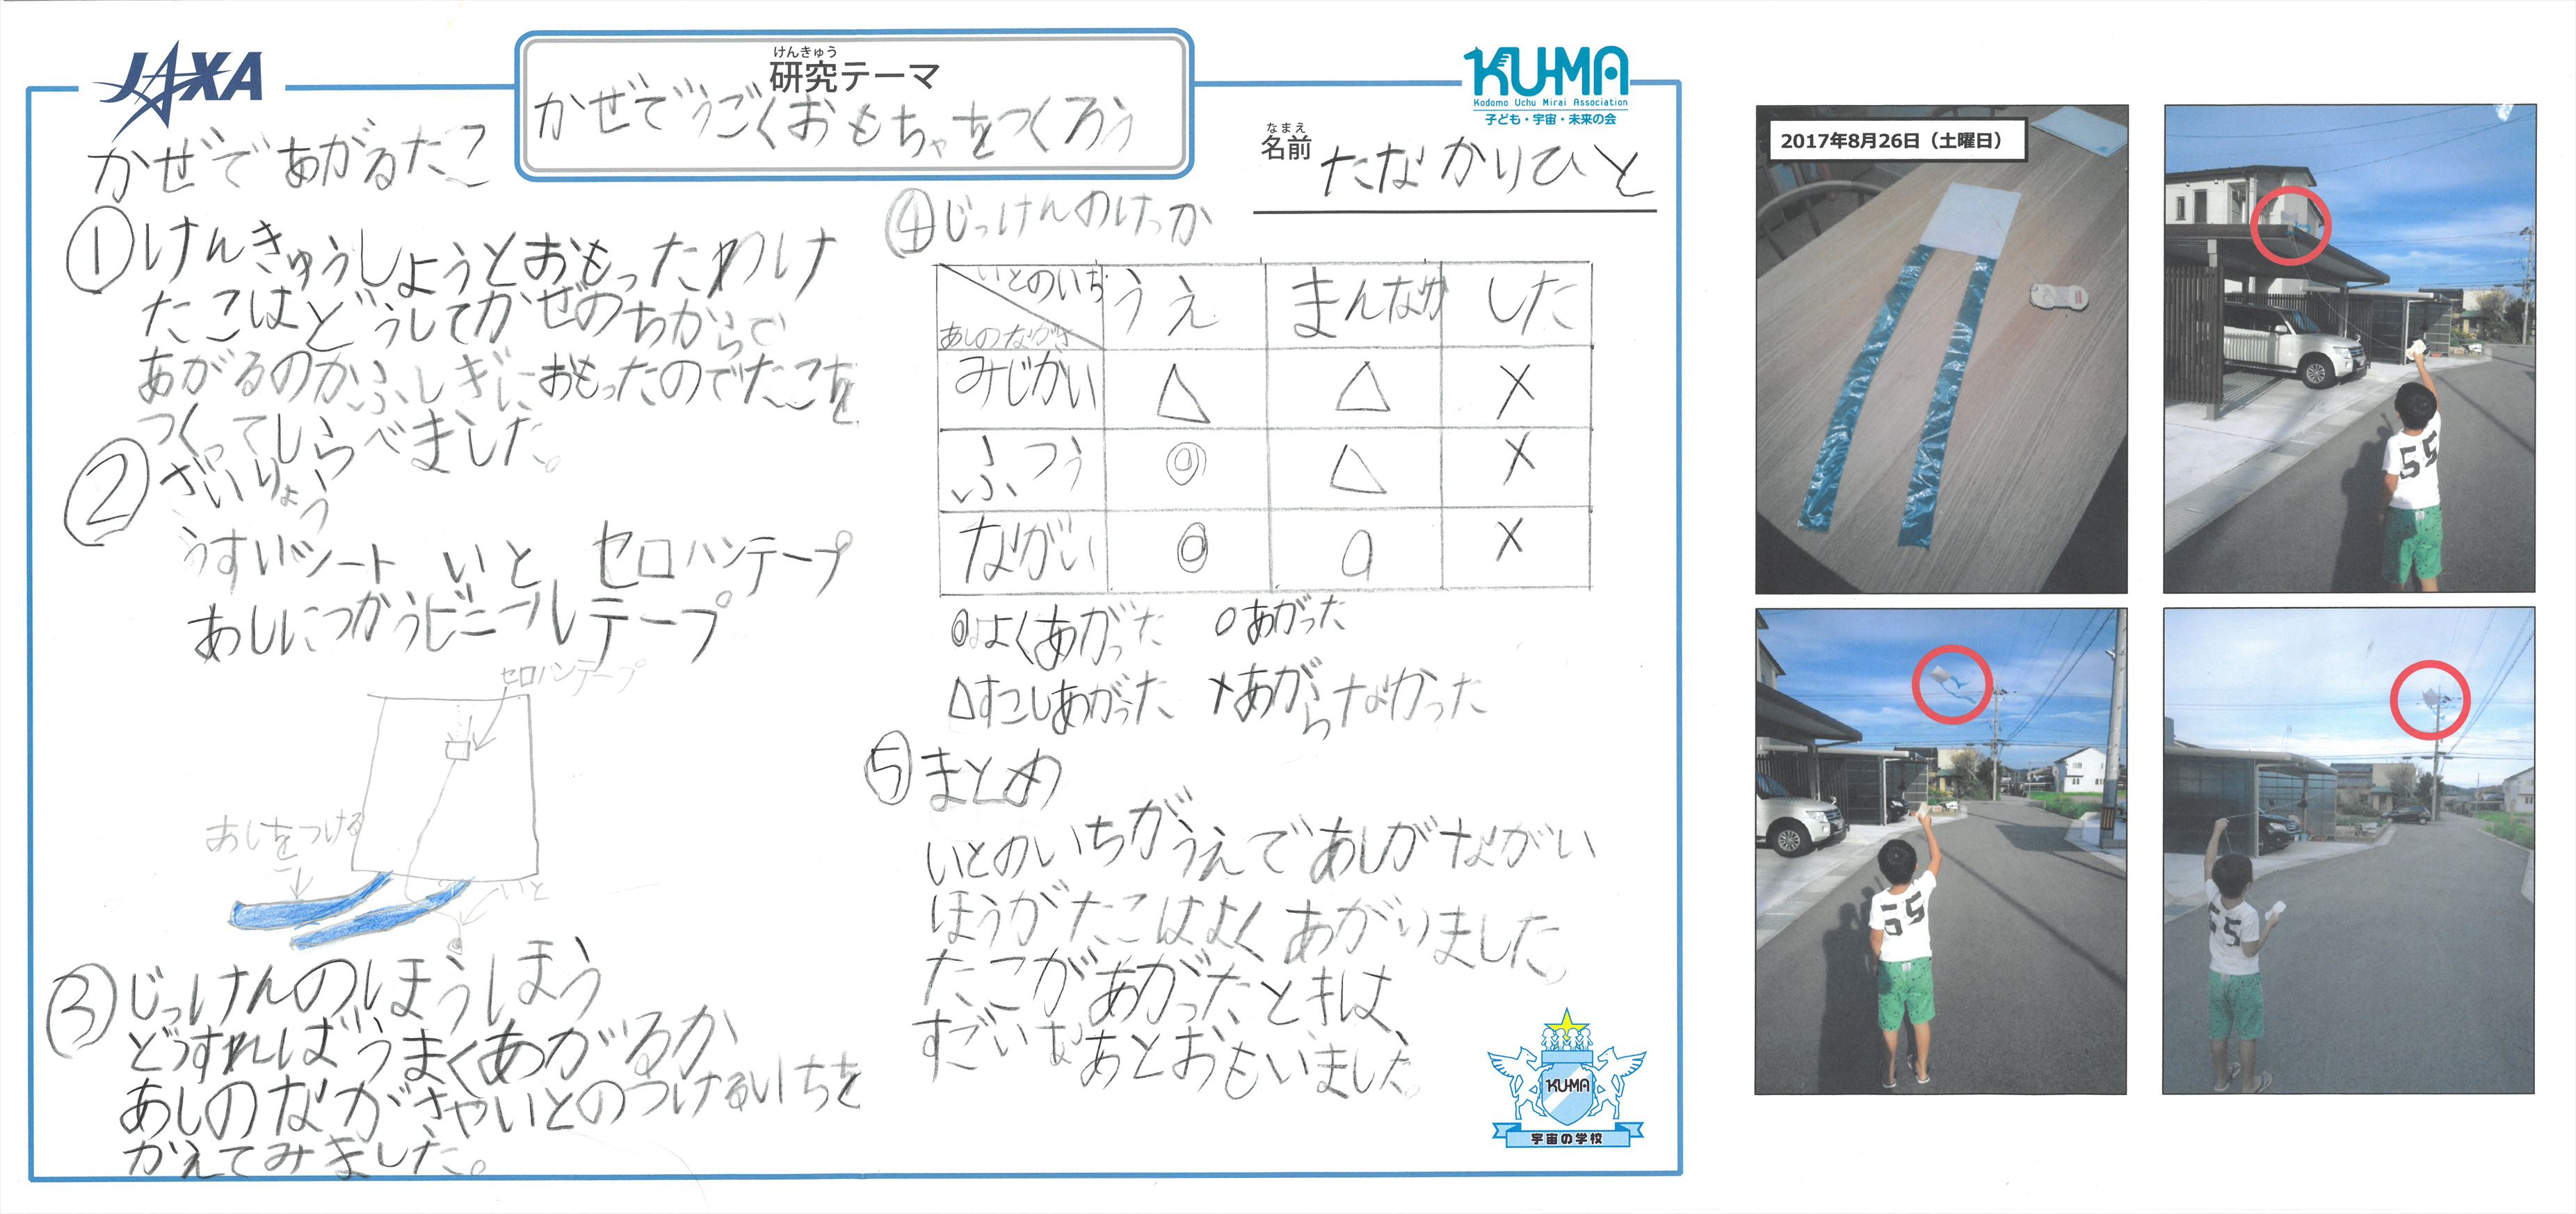 JAXA
けんきゅう
研究テーマ
かぜでうごくおもちゃをつくろう
KU-MA
Kodomo Uchu Mirai Association
子ども・宇宙・未来の会
なまえ
名前
たなかりひと
かぜであがるたこ
①けんきゅうしようとおもったわけ
たこはどうしてかぜのちからで
あがるのかふしぎにおもったのでたこを
つくってしらべました。
②ざいりょう
うすいシート いと セロハンテープ
あしにつかうビニールテープ
セロハンテープ
あしをつける
いと
③じっけんのほうほう
どうすればうまくあがるか
あしのながさやいとのつけるいちを
かえてみました。
④じっけんのけっか
いとのいち
あしのながさ
うえ まんなか した
みじかい △ △ ×
ふつう ◎ △ ×
ながい ◎ ○ ×
◎よくあがった ○あがった
△すこしあがった ×あがらなかった
⑤まとめ
いとのいちがうえであしがながい
ほうがたこはよくあがりました。
たこがあがったときは、
すごいなあとおもいました。
KU-MA
宇宙の学校
2017年8月26日（土曜日）
55
55
55